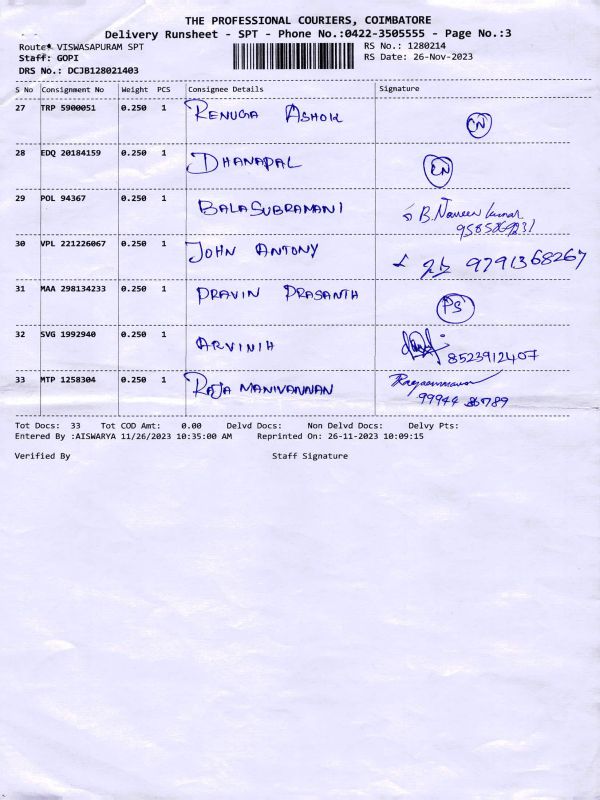 THE PROFESSIONAL COURIERS, COIMBATORE
Delivery Runsheet - SPT - Phone No.:0422-3505555 - Page No.:3
Route: VISWASAPURAM SPT RS No.: 1280214
Staff: GOPI RS Date: 26-Nov-2023
DRS No.: DCJB128021403
S No Consignment No Weight PCS Consignee Details Signature
27 TRP 5900051 0.250 1 RENUGA ASHOK
28 EDQ 20184159 0.250 1 DHANAPAL
29 POL 94367 0.250 1 BALASUBRAMANI B.Naveen Kumar
30 VPL 221226067 0.250 1 JOHN ANTONY 9791368267
31 MAA 298134233 0.250 1 PRAVIN PRASANTH PS
32 SVG 1992940 0.250 1 ARVINIH 8523912407
33 MTP 1258304 0.250 1 RAJA MANIVANNAN
99944
Tot Docs: 33 Tot COD Amt: 0.00 Delvd Docs: Non Delvd Docs: Delvy Pts:
Entered By :AISWARYA 11/26/2023 10:35:00 AM Reprinted On: 26-11-2023 10:09:15
Verified By Staff Signature